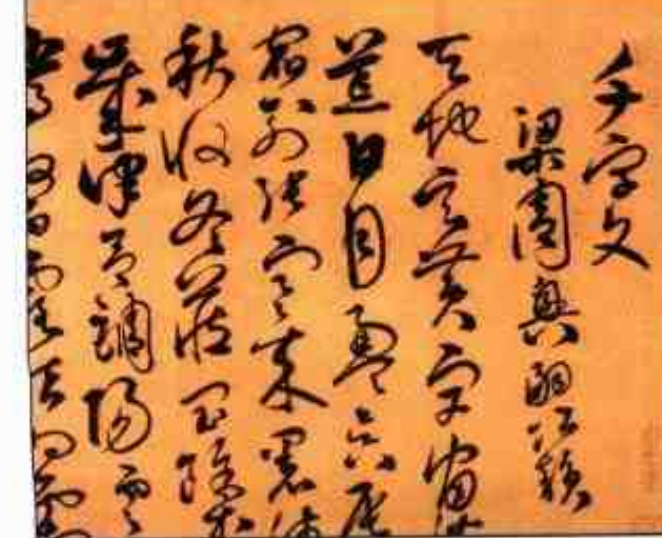 千字文
梁周興嗣次韻
天地玄黃宇宙洪
荒日月盈昃辰
宿列張寒來暑往
秋收冬藏閏餘成
歲律呂調陽雲